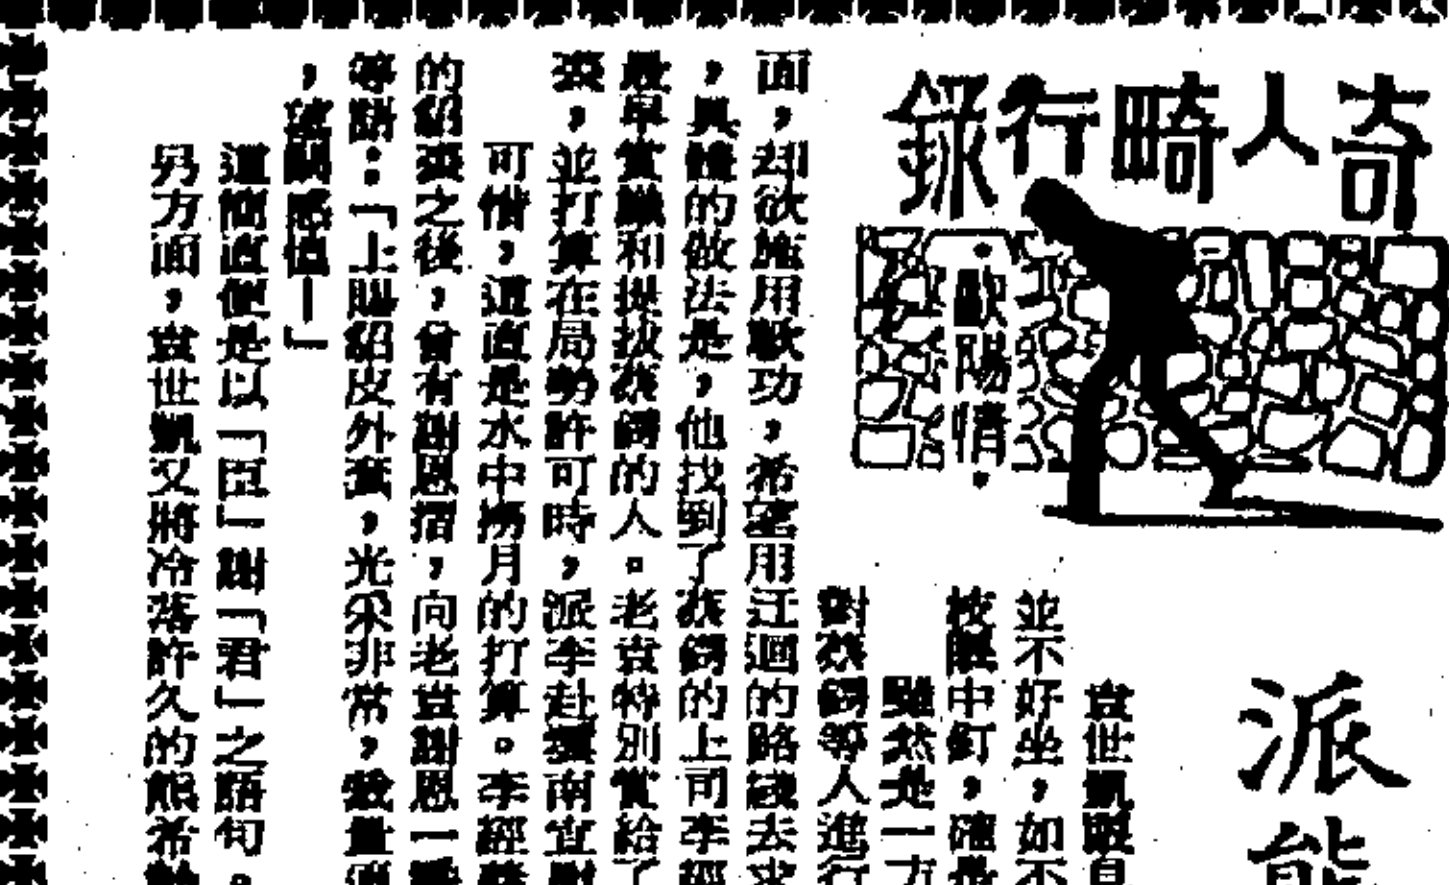 奇人畸行錄
·歐陽情·
派熊
袁世凱眼自
並不好坐，如不
按眼中釘，確是
雖然是一方
對蔡鍔等人進行
面，却欲施用軟功，希望用迂迴的路綫去求
，具體的做法是，他找到了蔡鍔的上司李經
最早賞識和提拔蔡鍔的人。老袁特別賞給了
裘，並打算在局勢許可時，派李赴雲南宣慰
可惜，這直是水中撈月的打算。李經羲
的貂裘之後，曾有謝恩摺，向老袁謝恩一番
等語：「上賜貂皮外套，光采非常，
，望闕感恒—」
這簡直便是以「臣」謝「君」之語句。
另方面，袁世凱又將冷落許久的熊希齡